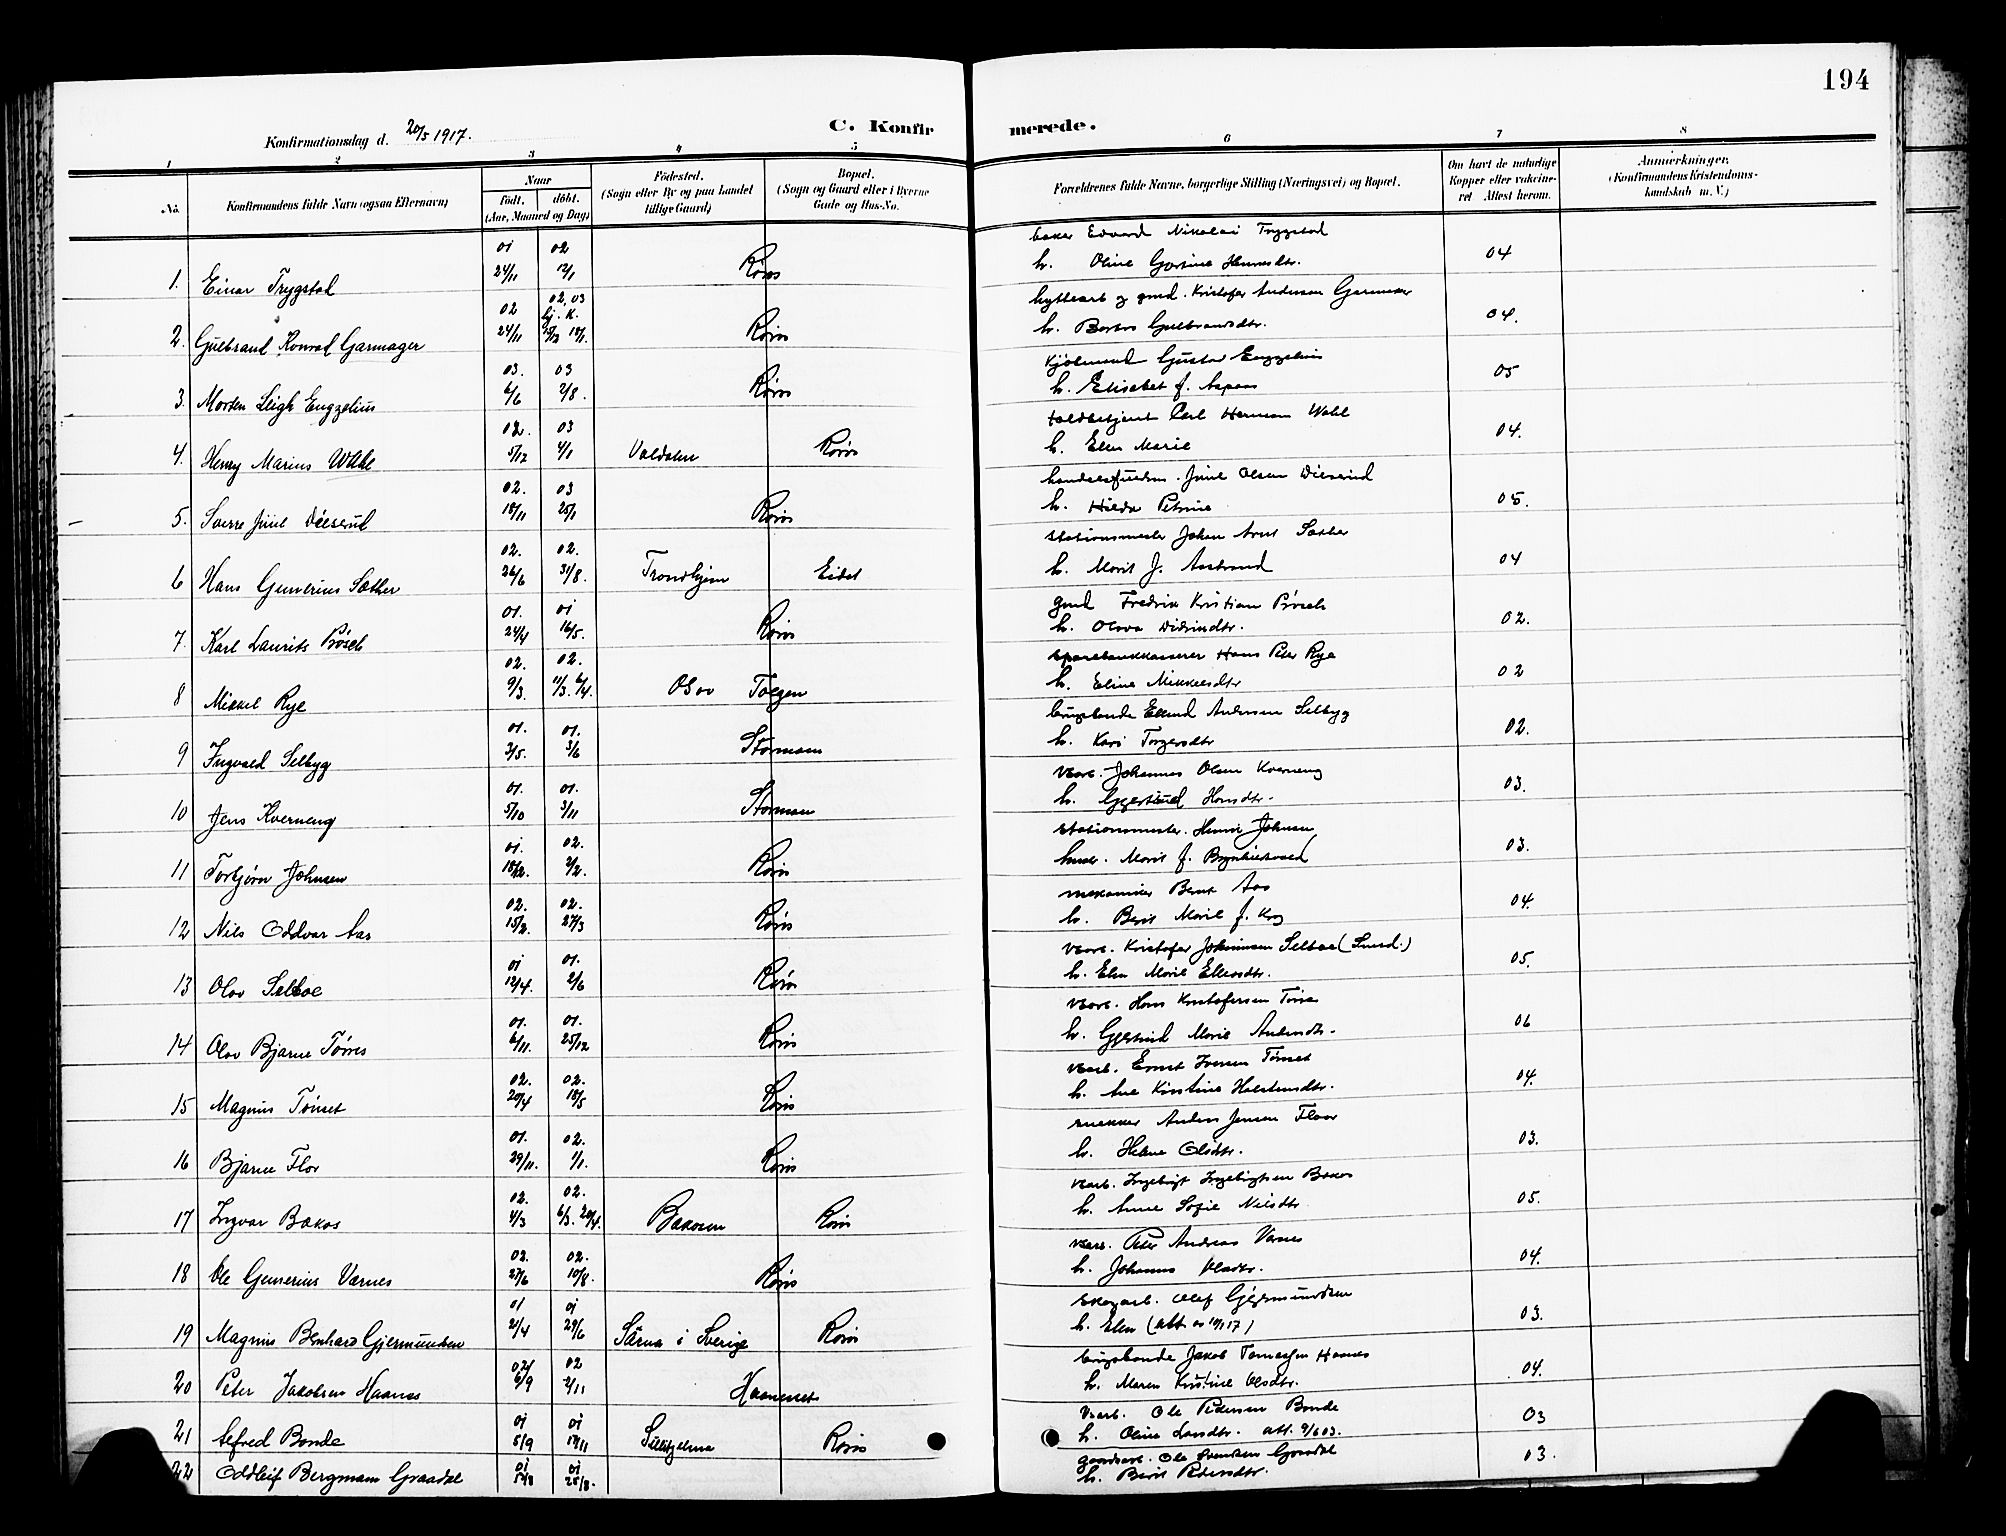 194
Konfirmationsdag d. 20/5 1917.
C. Konfirmerede.
1 2 3 4 5 6 7 8
No. Konfirmandens fulde Navn (ogsaa Efternavn) Naar født, døbt. (Aar, Maaned og Dag) Fødested. (Sogn eller By og paa Landet tillige Gaard) Bopæl. (Sogn og Gaard eller i Byerne Gade og Hus-No. Forældrenes fulde Navne, borgerlige Stilling (Næringsvei) og Bopæl. Om havt de naturlige Kopper eller vakcineret. Attest herom. Anmærkninger. (Konfirmandens Kristendomskundskab m. V.)
01 02 baker Edvard Nikolai Trygstad
1. Einar Trygstad 24/11 12/1 Røros h. Oline 04
02 02, 03 hj. K. hyttearb og gmd. Kristofer Andersen Garmager
2. Gulbrand Konrad Garmager 24/11 18/1 Røros h. Barbro Gulbrandsdtr. 04.
03. 03 Gustav Engzelius
3. Morten Leigh Engzelius 6/6 2/8. Røros h. Elisabet f. Aspaas 05
02. 03 toldbetjent Carl Herman Wahl
4. Henry Marius Wahl 5/12 4/1 Røros h. Ellen Marie 04.
02. 03 Juul Olsen Dieserud
5. Sverre Juul Dieserud 18/11 25/1 Røros h. Hilda Petrine 05.
02. 02. stationsmester Johan Arnt Sæther
6 Hans Gunerius Sæther 26/6 31/8. Trondhjem Eidet h. Marit J. Aastrand 04
01. 01 gmd Fredrik Kristian Prøsch
7. Karl Laurits Prøsch 24/4 16/5. Røros h. Olava Didriksdtr. 02.
02. 02. sparebankkasserer Hans Peter Rye
8 Mikkel Rye 9/3. 11/3. 6/4. Os Tolgen h. Eline Mikkelsdtr 02
01. 01. brugsbonde Ellend Andersen Selbyg
9 Ingvald Selbyg 3/5. 3/6 Stormoen h. Kari Torgersdtr 02.
01. 01. Johannes Olsen Kverneng
10 Jens Kverneng 5/10 3/11 Stormoen h. Gjertrud Hansdtr. 03.
01. 02. stationsmester. Henrik Johnsen
11 Torbjørn Johnsen 18/12. 2/2. Røros Marit f. Brynhildsvold 03.
02. 02. mekaniker Bernt Aas
12 Nils Oddvar Aas 15/2. 27/3 Røros h. Berit Marie f. Krog 04.
01 01. Kristofer Johannesen Selboe (Lund.)
13 Olav Selboe 12/4. 2/6 Røros h. Elen Marie Ellevsdtr. 05.
01. 01. Hans Kristofersen Tørres
14 Olav Bjarne Tørres 6/11. 25/12 Røros h. Gjertrud Marie 06
02. 02. Ernst Iversen Tønset
15 Magnus Tønset 20/4 18/5 Røros h. Ane Kristine Halstensdtr. 04.
01. 02. snekker Anders Jensen Floor
16 Bjarne Flor 29/11. 1/1. Røros h. Helene Olsdtr. 03.
02. 02. Ingebrigt Ingebrigtsen Bakos
17 Ingvar Bakos 4/3 6/3. 20/4. Røros h. Anne Sofie Nilsdtr 05.
02. 02. Peter Andreas Værnes
18 Ole Gunerius Værnes 27/6 10/8. Røros h. Johanna Olsdtr. 04.
01 01 skogarb. Olaf Gjermundsen
19 Magnus Bernhard Gjermundsen 21/4 29/6 Särna i Sverige Røros h. Elen 03.
02 02 brugsbonde Jakob Tomassen Haanes
20 Peter Jakobsen Haanes 6/9 2/11 Haaneset h. Maren Kristine Olsdtr. 04.
01 01 Ole Pedersen Bonde
21 Alfred Bonde 5/9 Sulitjelma Røros h. Oline Larsdtr. att. 9/6 03. 03
01 01 Ole Svendsen Graadal
22 Oddleif Bergmann Graadal 25/8. h. Berit Pedersdtr. 03.